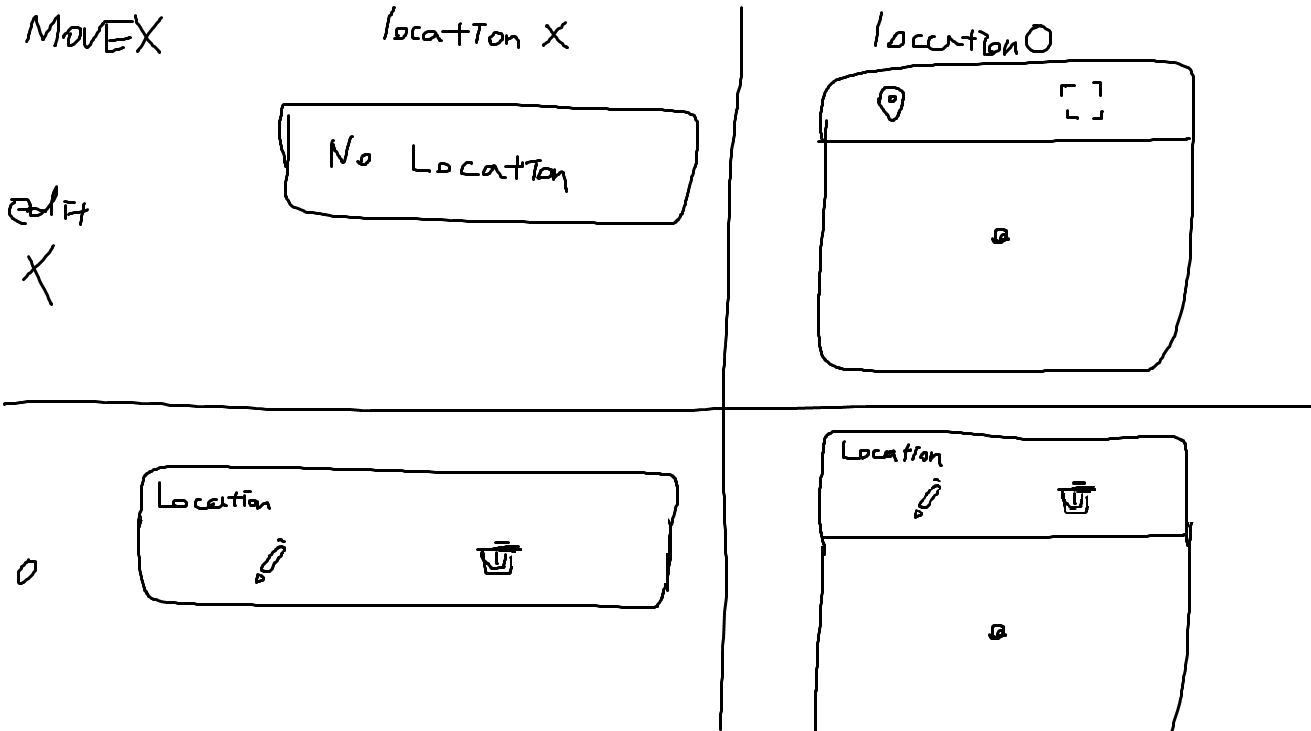 MovEX
location X
location O
No Location
edit
X
Location
Location
O